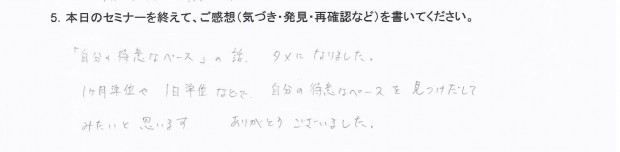 5. 本日のセミナーを終えて、ご感想(気づき・発見・再確認など)を書いてください。
「自分の得意なペース」の話、タメになりました。
1ヶ月単位や 1日単位などで、自分の得意なペースを見つけだして
みたいと思います ありがとうございました。